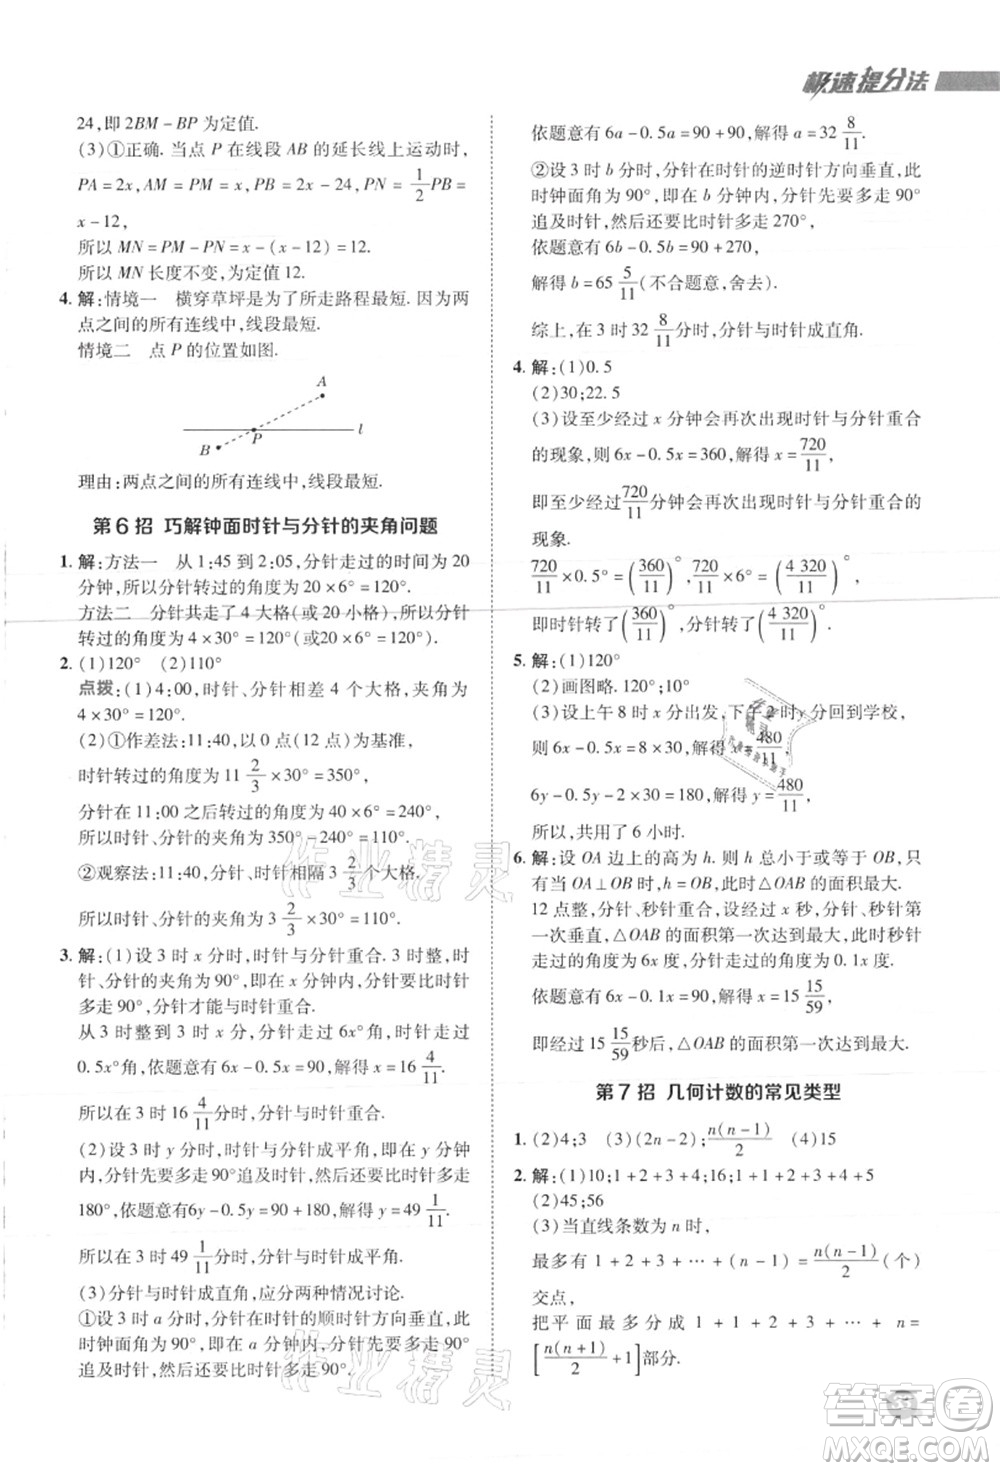 极速提分法
24,即 2BM－BP 为定值.
(3)①正确. 当点 P 在线段 AB 的延长线上运动时,
PA＝2x,AM＝PM＝x,PB＝2x－24,PN＝1/2PB＝
x－12,
所以 MN＝PM－PN＝x－(x－12)＝12.
所以 MN 长度不变,为定值 12.
4. 解:情境一 横穿草坪是为了所走路程最短. 因为两
点之间的所有连线中,线段最短.
情境二 点 P 的位置如图.
A
P
l
B
理由:两点之间的所有连线中,线段最短.
第 6 招 巧解钟面时针与分针的夹角问题
1. 解:方法一 从 1:45 到 2:05,分针走过的时间为 20
分钟,所以分针转过的角度为 20×6°＝120°.
方法二 分针共走了 4 大格(或 20 小格),所以分针
转过的角度为 4×30°＝120°(或20×6°＝120°).
2. (1)120° (2)110°
点拨:(1)4:00,时针、分针相差 4 个大格,夹角为
4×30°＝120°.
(2)①作差法:11:40,以 0 点所在位置为基准,
时针转过的角度为 11 2/3×30°＝350°,
分针在 11:00 之后转过的角度为 8×30°＝240°,
所以时针、分针的夹角为 350°－240°＝110°.
②观察法:11:40,分针、时针相隔 3 2/3 个大格.
所以时针、分针的夹角为 3 2/3×30°＝110°.
3. 解:(1)设 3 时 x 分时,时针与分针重合. 3 时整,时
针、分针的夹角为 90°,即在 x 分钟内,分针要比时针
多走 90°,分针才能与时针重合.
从 3 时整到 3 时 x 分,分针走过 6x°角,时针走过
0.5x°角,依题意有 6x－0.5x＝90,解得 x＝16 4/11.
所以在 3 时 16 4/11 分时,分针与时针重合.
(2)设 3 时 y 分时,时针与分针成平角,即在 y 分钟
内,分针先要多走 90°追及时针,然后还要比时针多走
180°,依题意有6y－0.5y＝90＋180,解得 y＝49 1/11.
所以在 3 时 49 1/11 分时,分针与时针成平角.
(3)分针与时针成直角,应分两种情况讨论.
①设 3 时 a 分时,分针在时针的顺时针方向垂直,此
时钟面角为 90°,即在 a 分钟内,分针先要多走 90°
追及时针,然后还要比时针多走 90°.
依题意有 6a－0.5a＝90＋90,解得 a＝32 8/11.
②设 3 时 b 分时,分针在时针的逆时针方向垂直,此
时钟面角为 90°,即在 b 分钟内,分针先要多走 90°
追及时针,然后还要比时针多走 270°,
依题意有 6b－0.5b＝90＋270,
解得 b＝65 5/11(不合题意,舍去).
综上,在 3 时 32 8/11 分时,分针与时针成直角.
4. 解:(1)0.5
(2)30;22.5
(3)设至少经过 x 分钟会再次出现时针与分针重合
的现象,则 6x－0.5x＝360,解得 x＝720/11,
即至少经过 720/11 分钟会再次出现时针与分针重合的
现象.
720/11×0.5°＝(360/11)°,720/11×6°＝(4 320/11)°,
即时针转了(360/11)°,分针转了(4 320/11)°.
5. 解:(1)120°
(2)画图略. 120°;10°
(3)设上午 8 时 x 分出发,下午 2 时 y 分回到学校,
则 6x－0.5x＝8×30,解得 x＝480/11,
6y－0.5y＝2×30＋180,解得 y＝480/11,
所以,共用了 6 小时.
6. 解:设 OA 边上的高为 h. 则 h 总小于或等于 OB,所以
只有当 OA⊥OB 时,h＝OB,此时△OAB 的面积最大.
12 点整,分针、秒针重合,设经过 x 秒,分针、秒针第
一次垂直,△OAB 的面积第一次达到最大,此时秒针
走过的角度为 6x 度,分针走过的角度为 0.1x 度.
依题意有 6x－0.1x＝90,解得 x＝15 15/59,
即经过 15 15/59 秒后,△OAB 的面积第一次达到最大.
第 7 招 几何计数的常见类型
1. (2)4;3 (3)(2n－2);n(n－1)/2 (4)15
2. 解:(1)10;1＋1＋2＋3＋4＋5
(2)45;56
(3)当直线条数为 n 时,
最多有 1＋2＋3＋…＋(n－1)＝n(n－1)/2(个)
交点,
把平面最多分成 1＋1＋2＋3＋…＋n＝
[n(n＋1)/2＋1]部分.
31
作业精灵
作业精灵
答案圈
MXQE.COM